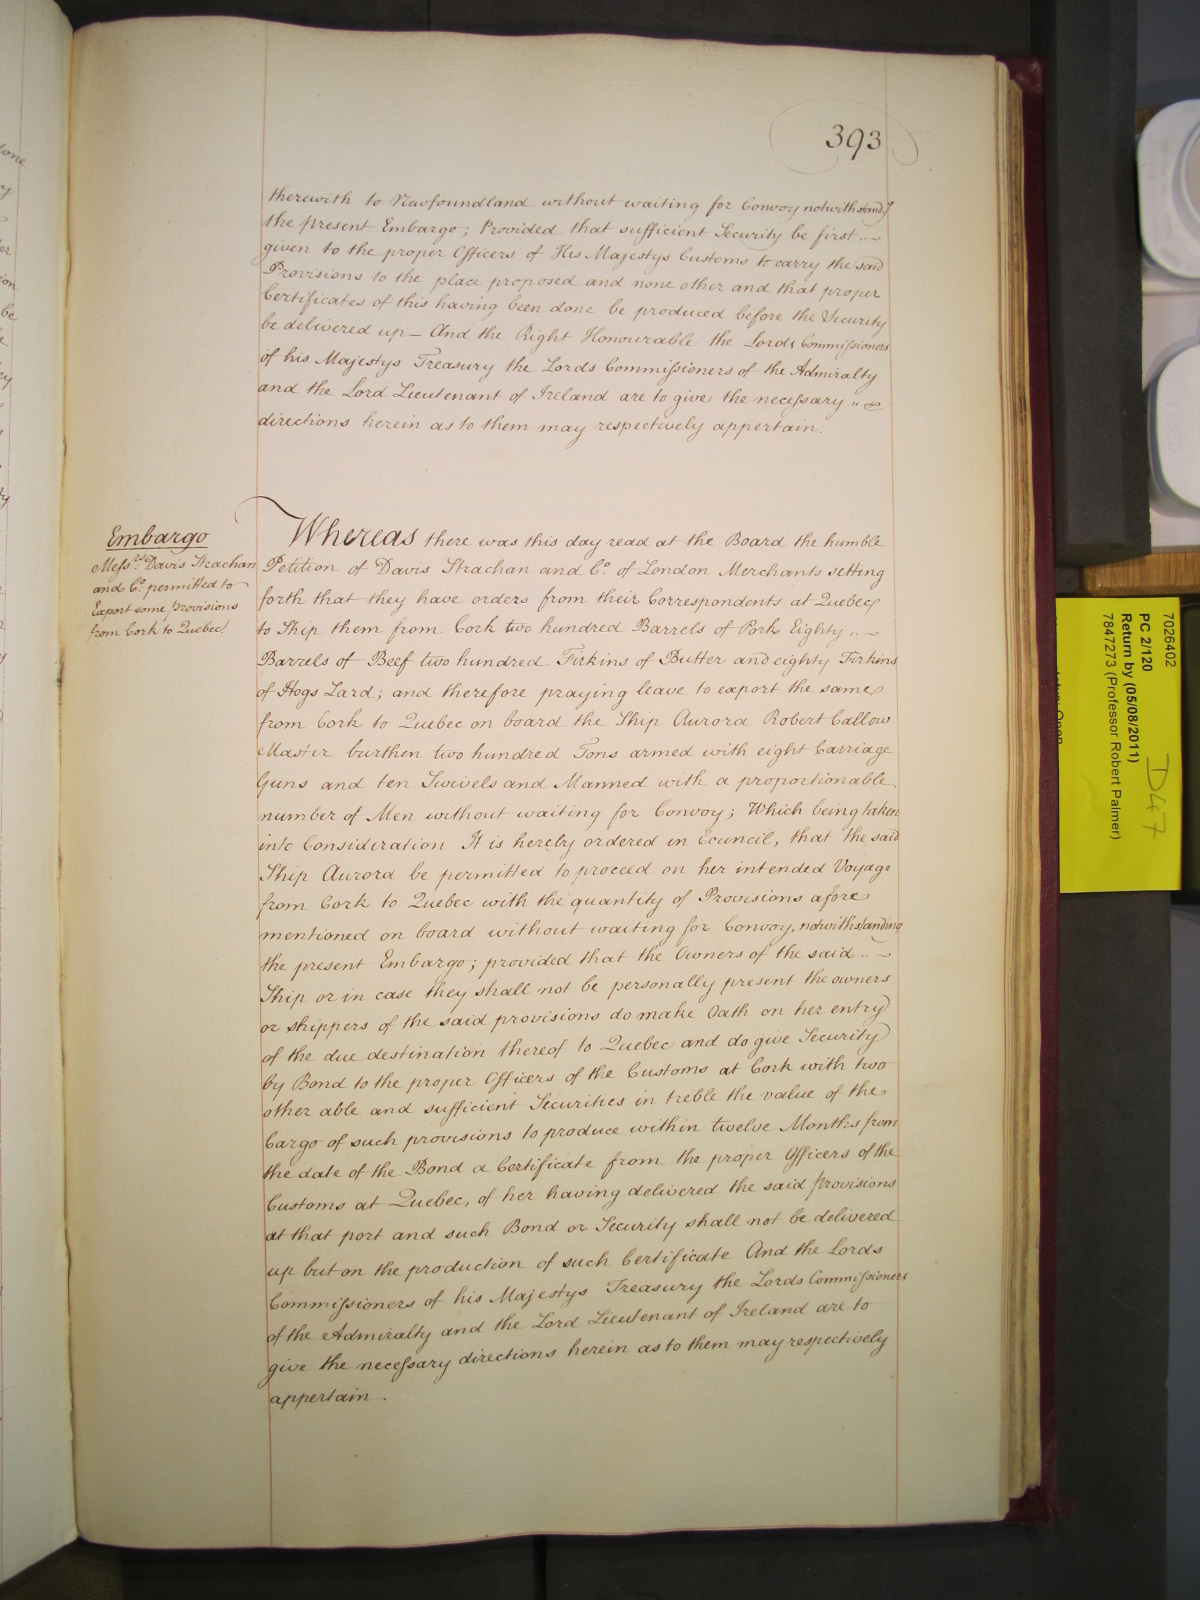 393
therewith to Newfoundland without waiting for Convoy notwithstand.g
the present Embargo; Provided that sufficient Security be first
given to the proper Officers of His Majestys Customs to carry the said
Provisions to the place proposed and none other and that proper
Certificates of this having been done be produced before the Security
be delivered up – And the Right Honourable the Lords Commissioners
of his Majestys Treasury the Lords Commissioners of the Admiralty
and the Lord Lieutenant of Ireland are to give the necessary
directions herein as to them may respectively appertain.
Embargo
Mess.rs Davis Strachan
and Co. permitted to
Export some provisions
from Cork to Quebec.
Whereas there was this day read at the Board the humble
Petition of Davis Strachan and Co. of London Merchants setting
forth that they have orders from their Correspondents at Quebec
to Ship them from Cork two hundred Barrels of Pork Eighty
Barrels of Beef two hundred Firkins of Butter and eighty Firkins
of Hogs Lard; and therefore praying leave to export the same
from Cork to Quebec on board the Ship Aurora Robert Callow
Master burthen two hundred Tons armed with eight Carriage
Guns and ten Swivels and Manned with a proportionable
number of Men without waiting for Convoy; Which being taken
into Consideration It is hereby ordered in Council, that the said
Ship Aurora be permitted to proceed on her intended Voyage
from Cork to Quebec with the quantity of Provisions afore
mentioned on board without waiting for Convoy, notwithstanding
the present Embargo; provided that the Owners of the said
Ship or in case they shall not be personally present the owners
or shippers of the said provisions do make Oath on her entry
of the due destination thereof to Quebec and do give Security
by Bond to the proper Officers of the Customs at Cork with two
other able and sufficient Securities in treble the value of the
Cargo of such provisions to produce within twelve Months from
the date of the Bond a Certificate from the proper Officers of the
Customs at Quebec, of her having delivered the said provisions
at that port and such Bond or Security shall not be delivered
up but on the production of such Certificate And the Lords
Commissioners of his Majestys Treasury the Lords Commissioners
of the Admiralty and the Lord Lieutenant of Ireland are to
give the necessary directions herein as to them may respectively
appertain.
7026402
PC 2/120
Return by (05/08/2011)
7847273 (Professor Robert Palmer)
D47